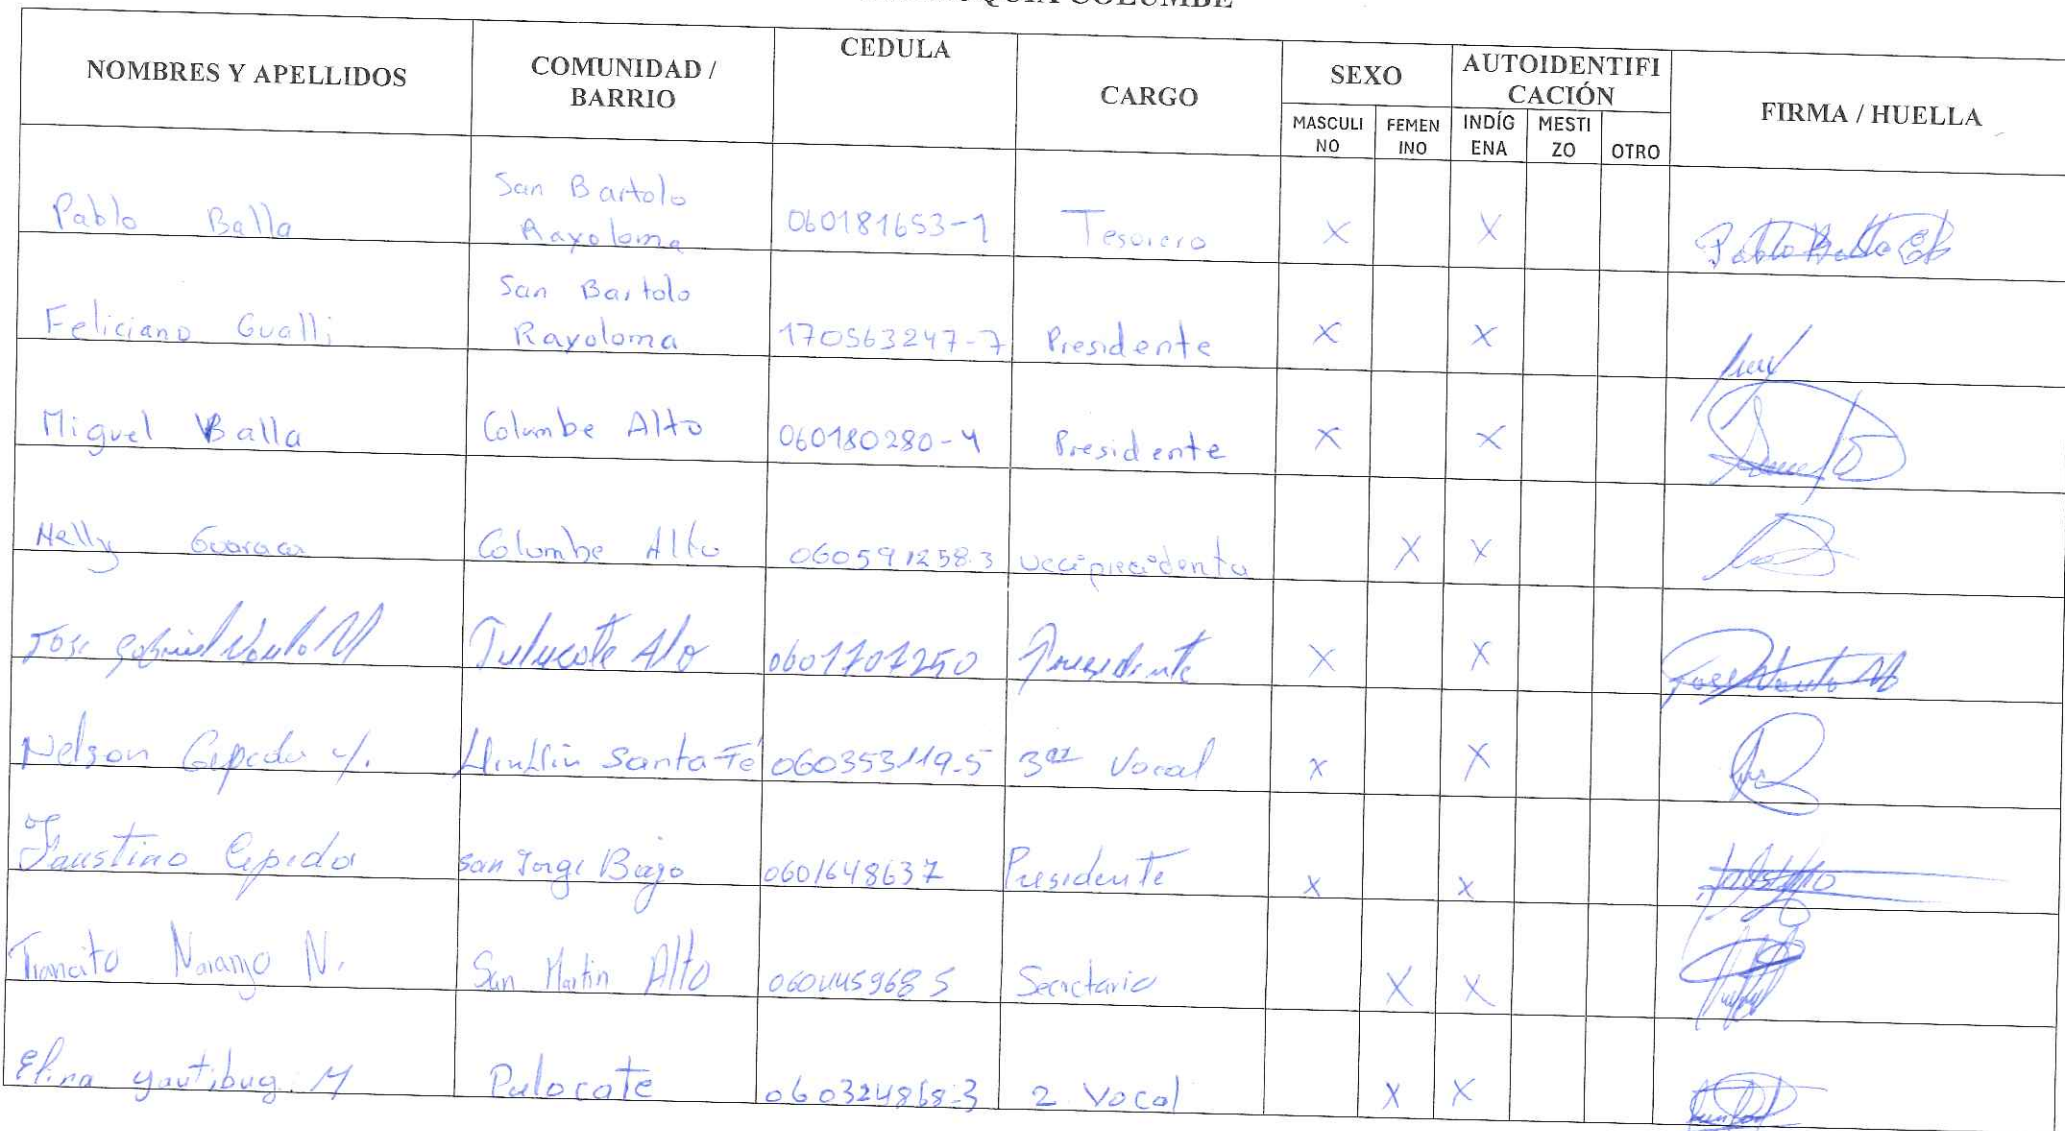 COLUMBE
NOMBRES Y APELLIDOS
COMUNIDAD /
BARRIO
CEDULA
CARGO
SEXO
AUTOIDENTIFI
CACIÓN
FIRMA / HUELLA
MASCULI
NO
FEMEN
INO
INDÍG
ENA
MESTI
ZO
OTRO
Pablo Balla
San Bartolo
Rayoloma
060181653-1
Tesorero
X
X
Pablo Balla
Feliciano Gualli
San Bartolo
Rayoloma
170563247-7
Presidente
X
X
Miguel Balla
Columbe Alto
060180280-4
Presidente
X
X
Nelly Guaraca
Columbe Alto
060591258.3
X
X
Jose Gabriel
Alto
0601707250
Presidente
X
X
Jose
Nelson Cepeda Y.
Llinllin Santa Fé
060353119-5
3er Vocal
X
X
Faustino Cepeda
San Jorge Bajo
0601648637
Presidente
X
X
Trancito Naranjo N.
San Martin Alto
060445968 5
Secretario
X
X
Elina Yautibug. M
Pulocate
060324868-3
2 Vocal
X
X